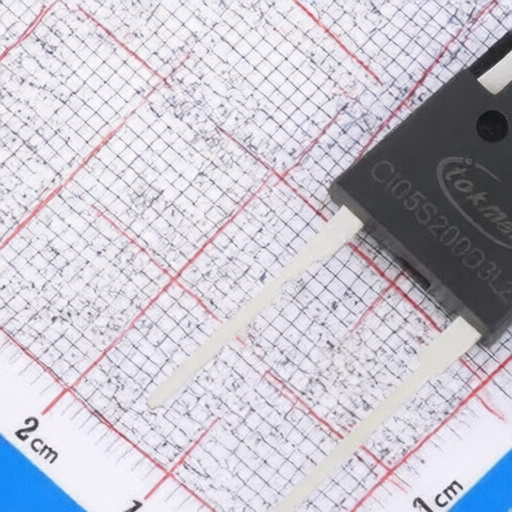 tokma
CI05S200D3L2
2 cm
1
1 cm